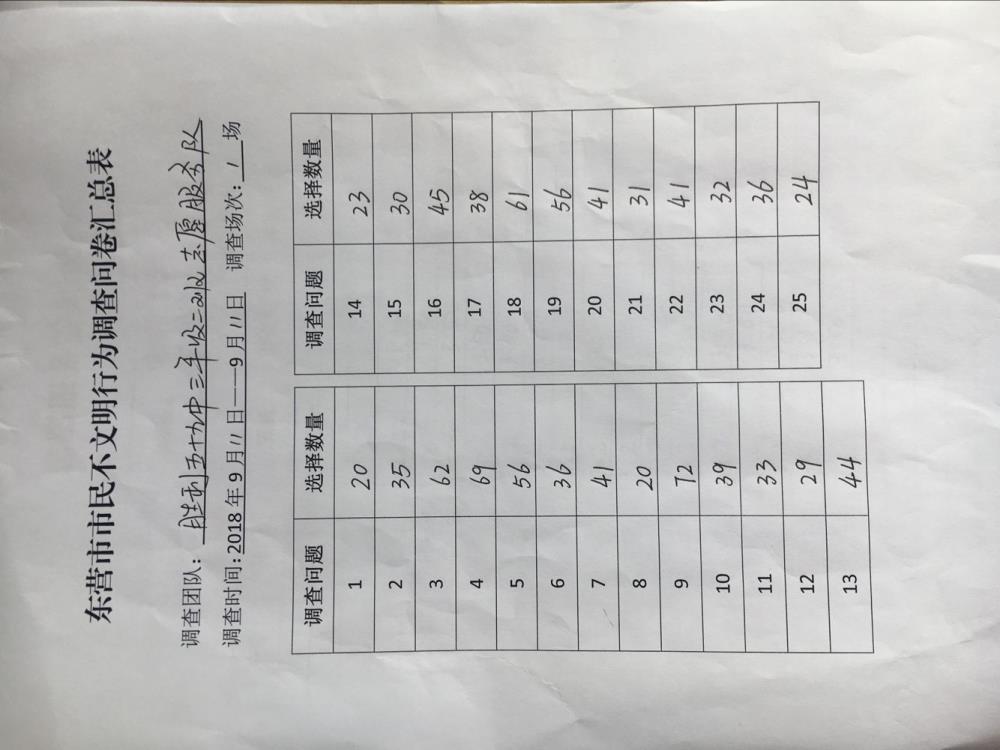 东营市市民不文明行为调查问卷汇总表
调查团队：胜利五十九中三年级二班志愿服务队
调查时间：2018年9月11日——9月11日 调查场次：1场
调查问题 选择数量
1 20
2 35
3 62
4 69
5 56
6 36
7 41
8 20
9 72
10 39
11 33
12 29
13 44
调查问题 选择数量
14 23
15 30
16 45
17 38
18 61
19 56
20 41
21 31
22 41
23 32
24 36
25 24